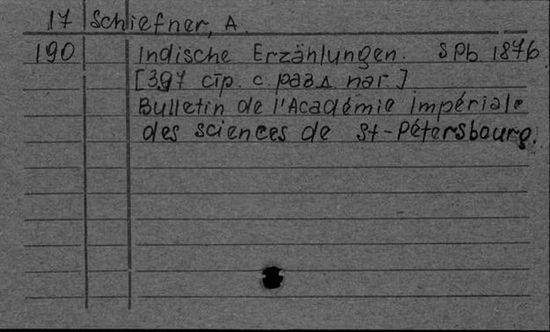 17 Schiefner, A.
190 Indische Erzählungen. SPb 1876
[397 стр. с разд. паг.]
Bulletin de l'Académie impériale
des sciences de St-Pétersbourg.